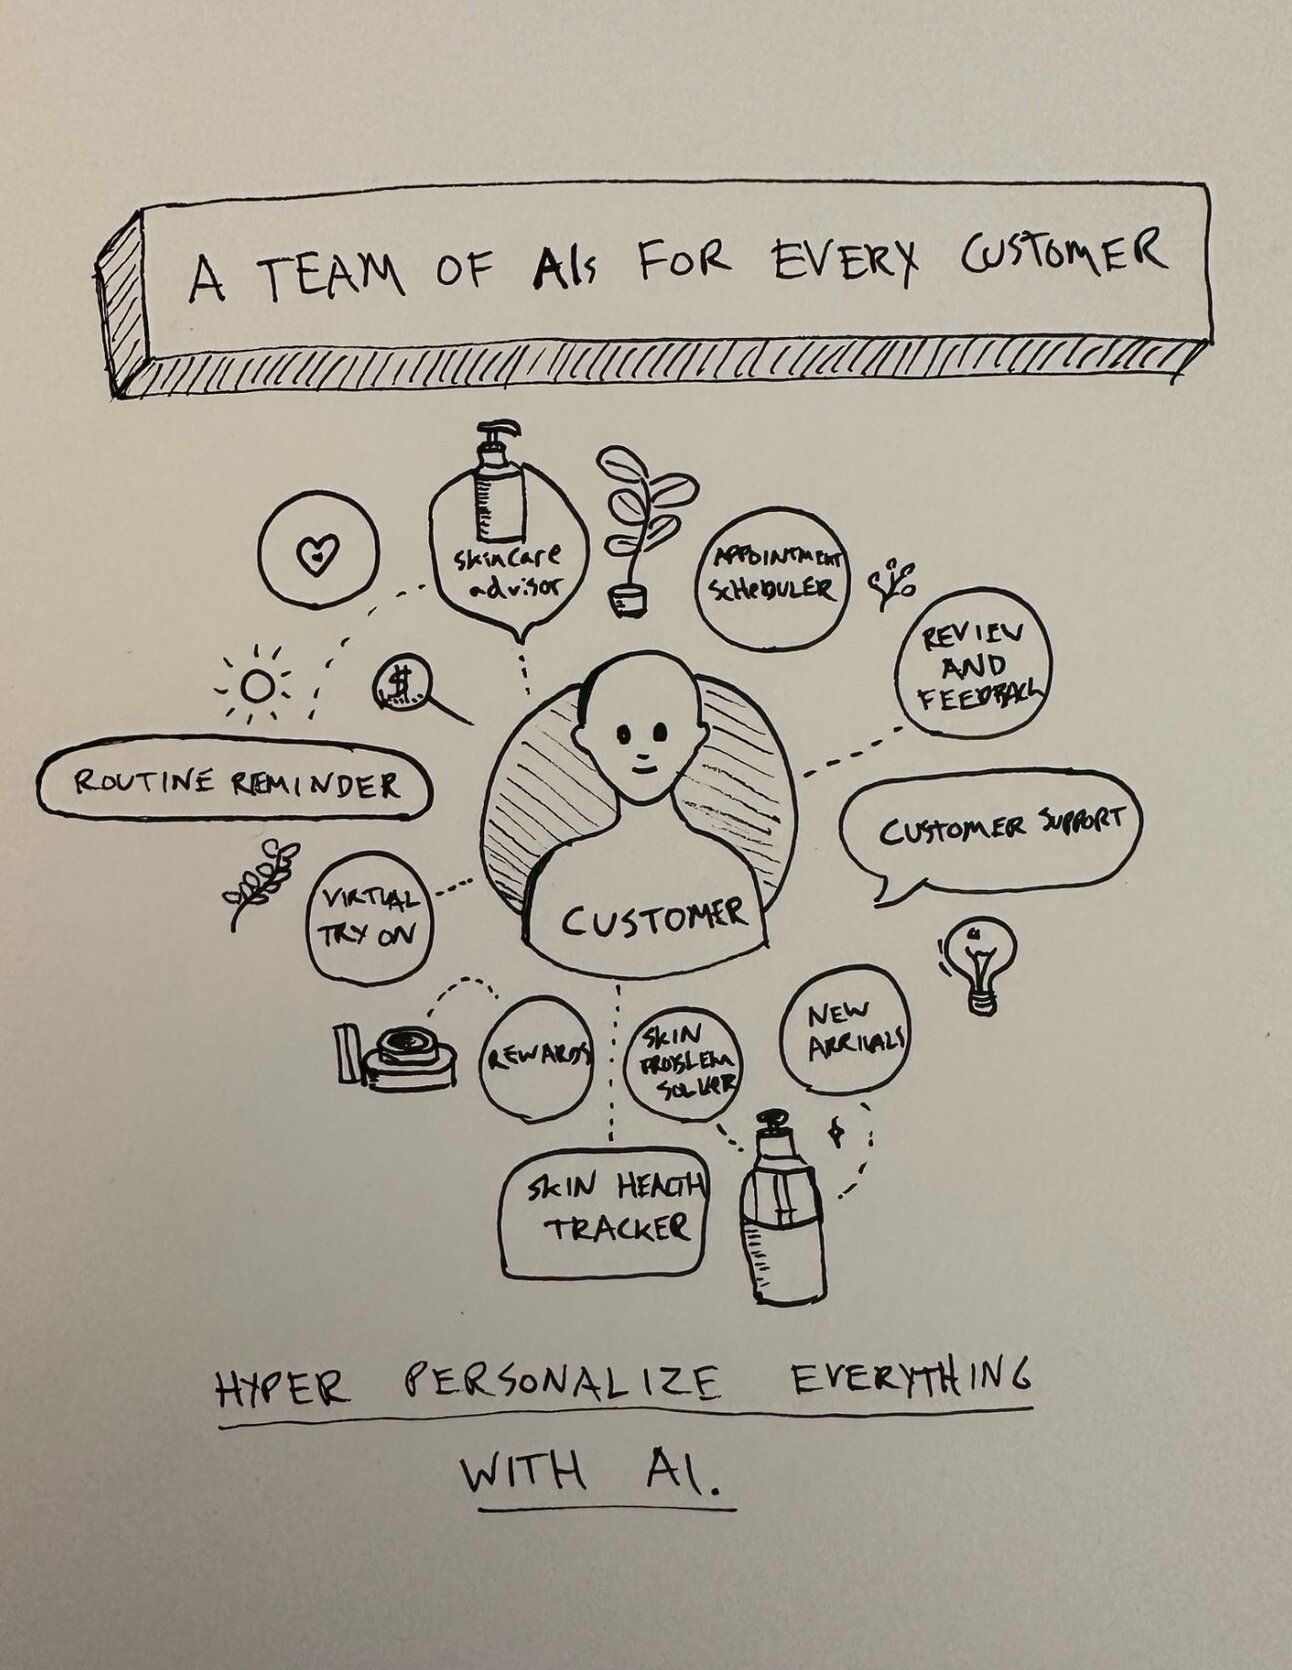 A TEAM OF AIs FOR EVERY CUSTOMER
skincare
advisor
APPOINTMENT
SCHEDULER
REVIEW
AND
FEEDBACK
$
ROUTINE REMINDER
CUSTOMER SUPPORT
VIRTUAL
TRY ON
CUSTOMER
REWARDS
SKIN
PROBLEM
SOLVER
NEW
ARRIVALS
SKIN HEALTH
TRACKER
HYPER PERSONALIZE EVERYTHING
WITH AI.